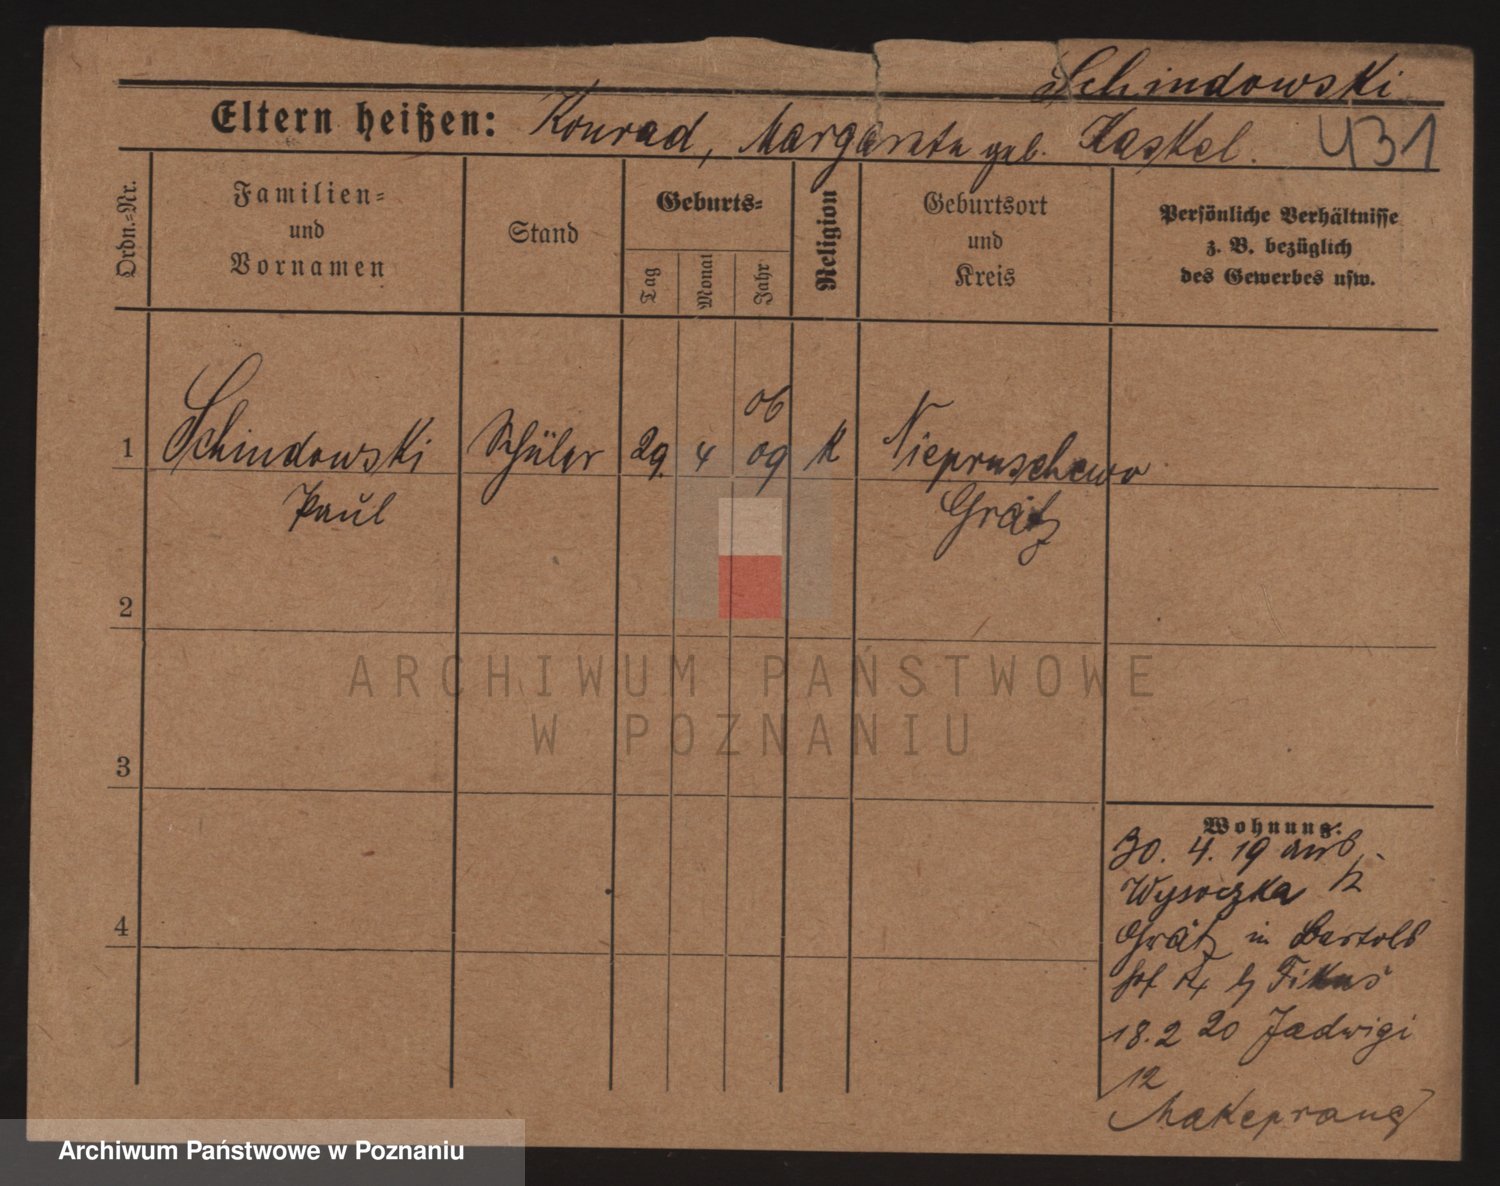 Schindowski
Eltern heißen: Konrad, Margarete geb. Kaskel. 431
Ordn.-Nr.
Familien-
und
Vornamen
Stand
Geburts-
Tag
Monat
Jahr
Religion
Geburtsort
und
Kreis
Persönliche Verhältnisse
z. B. bezüglich
des Gewerbes usw.
06
1 Schindowski Schüler 29. 4 09 k Niepruschewo
Paul Grätz
2
3
4
Wohnung:
30. 4. 19 aus
Wysoczka
Grätz in Bartold
hof Fikus
18. 2 20 Jadwigi
12
Makeprang
ARCHIWUM PAŃSTWOWE
W POZNANIU
Archiwum Państwowe w Poznaniu